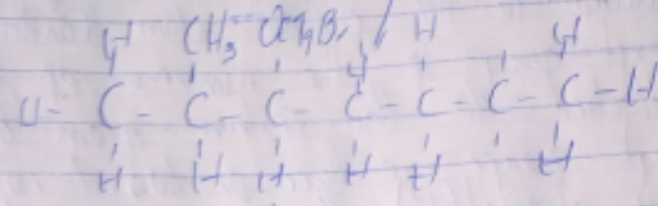 H CH₃ CH₂Br H H
H - C - C - C - C - C - C - C - H
H H H H H H